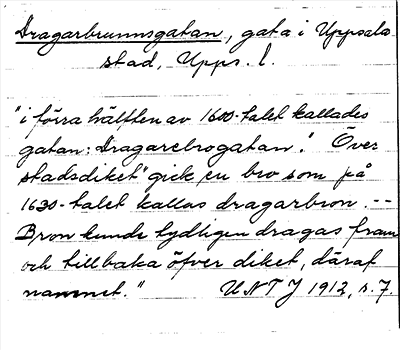 Dragarbrunnsgatan, gata i Uppsala
stad, Upps. l.
"i förra hälften av 1600-talet kallades
gatan: Dragarebrogatan." Över
stadsdiket "gick en bro som på
1630-talet kallas dragarbron. --
Bron kunde tydligen dragas fram
och tillbaka öfver diket, däraf
namnet." UNT J 1912, s. 7.